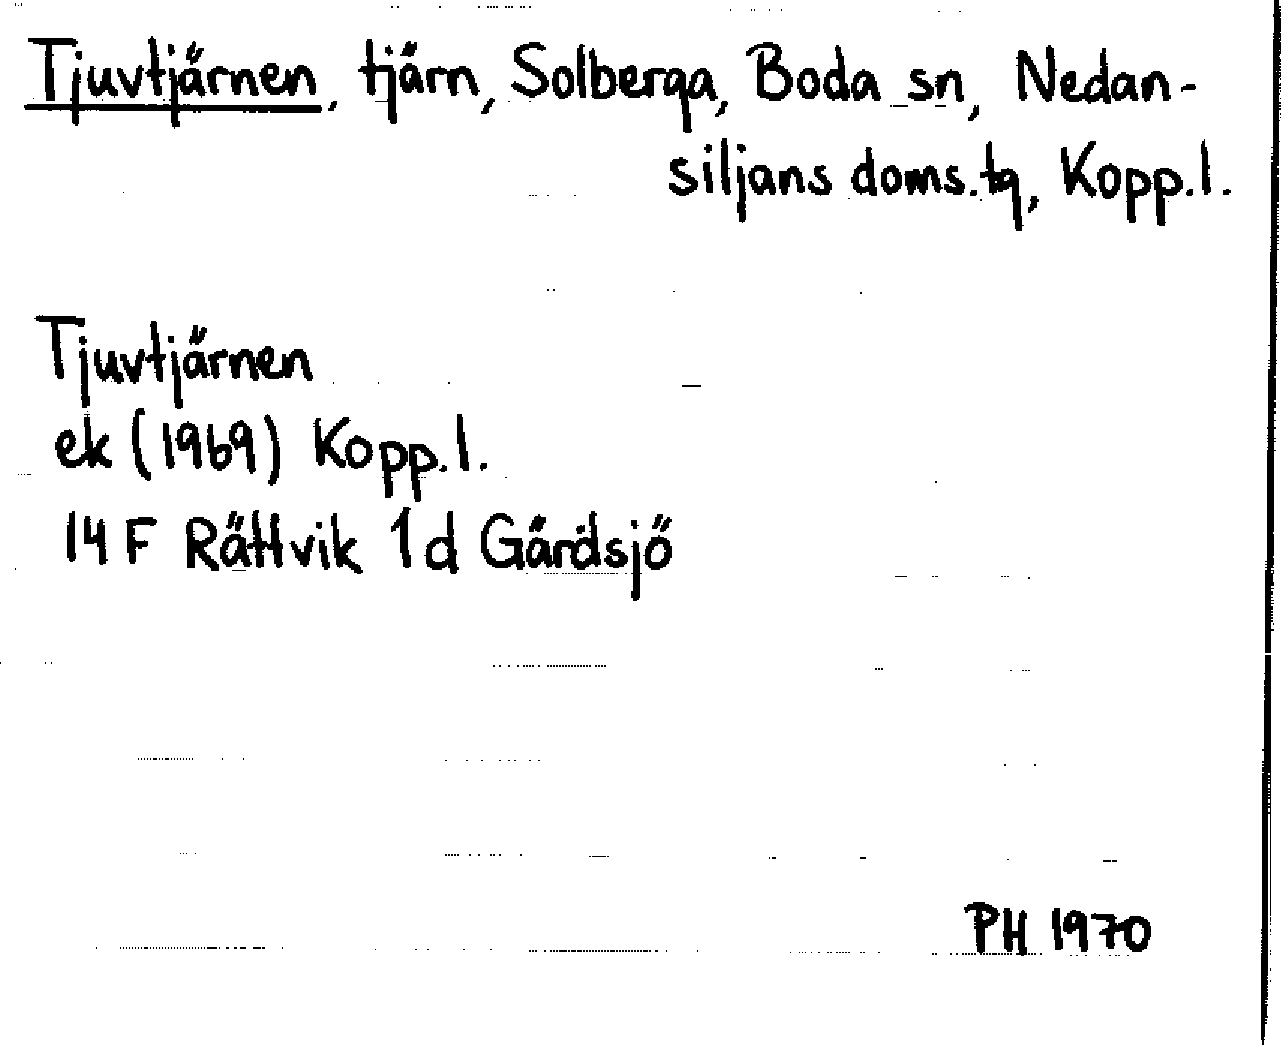 Tjuvtjärnen, tjärn, Solberga, Boda sn, Nedan-
siljans doms.tg, Kopp.l.
Tjuvtjärnen
ek (1969) Kopp.l.
14 F Rättvik 1d Gärdsjö
PH 1970